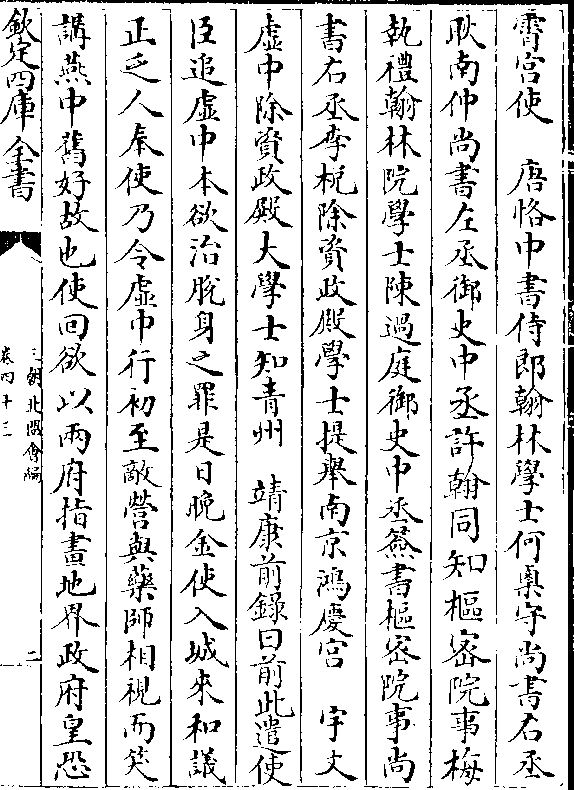 霄宫使　唐恪中書侍郎翰林學士何㮚守尚書右丞
耿南仲尚書左丞御史中丞許翰同知樞宻院事梅
執禮翰林院學士陳過庭御史中丞僉書樞宻院事尚
書右丞李梲除資政殿學士提舉南京鴻慶宫　宇文
虚中除資政殿大學士知青州　靖康前録曰前此遣使
臣追虚中本欲治脱身之罪是日晚金使入城來和議
正乏人奉使乃令虚中行初至敵營與藥師相視而笑
講燕中舊好故也使回欲以兩府指畫地界政府皇恐
欽定四庫全書
三朝北盟會編
卷四十三
二